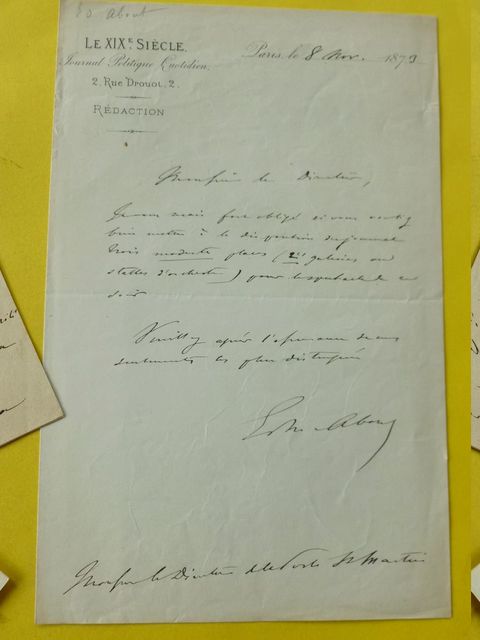 Ed About
LE XIXᴱ SIÈCLE.
Journal Politique Quotidien.
2, Rue Drouot, 2.
RÉDACTION
Paris, le 8 Nov. 1873
Monsieur le Directeur,
Je vous serais fort obligé si vous vouliez
bien mettre à la disposition du journal
trois modestes places (2es galeries ou
stalles d'orchestre) pour la de ce
soir
Veuillez agréer l'assurance de mes
sentiments les plus distingués
Edm About
Monsieur le Directeur de la Porte St Martin